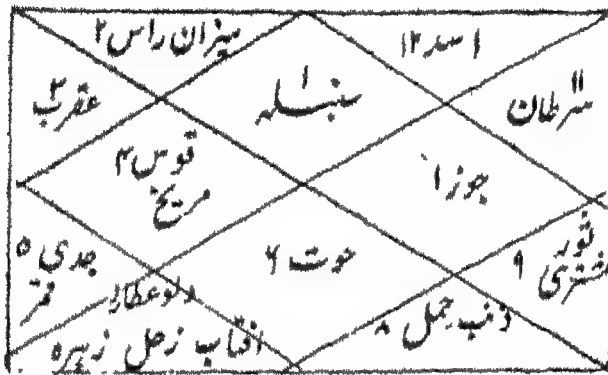 میزان راس ۲
اسد ۱۲
۱
سنبلہ
عقرب ۳
۱۱
سرطان
قوس ۴
مریخ
جوزا ۱۰
جدی ۵
قمر
حوت ۶
ثور
مشتری ۹
دلو عطارد
آفتاب زحل زہرہ
ذنب حمل ۸